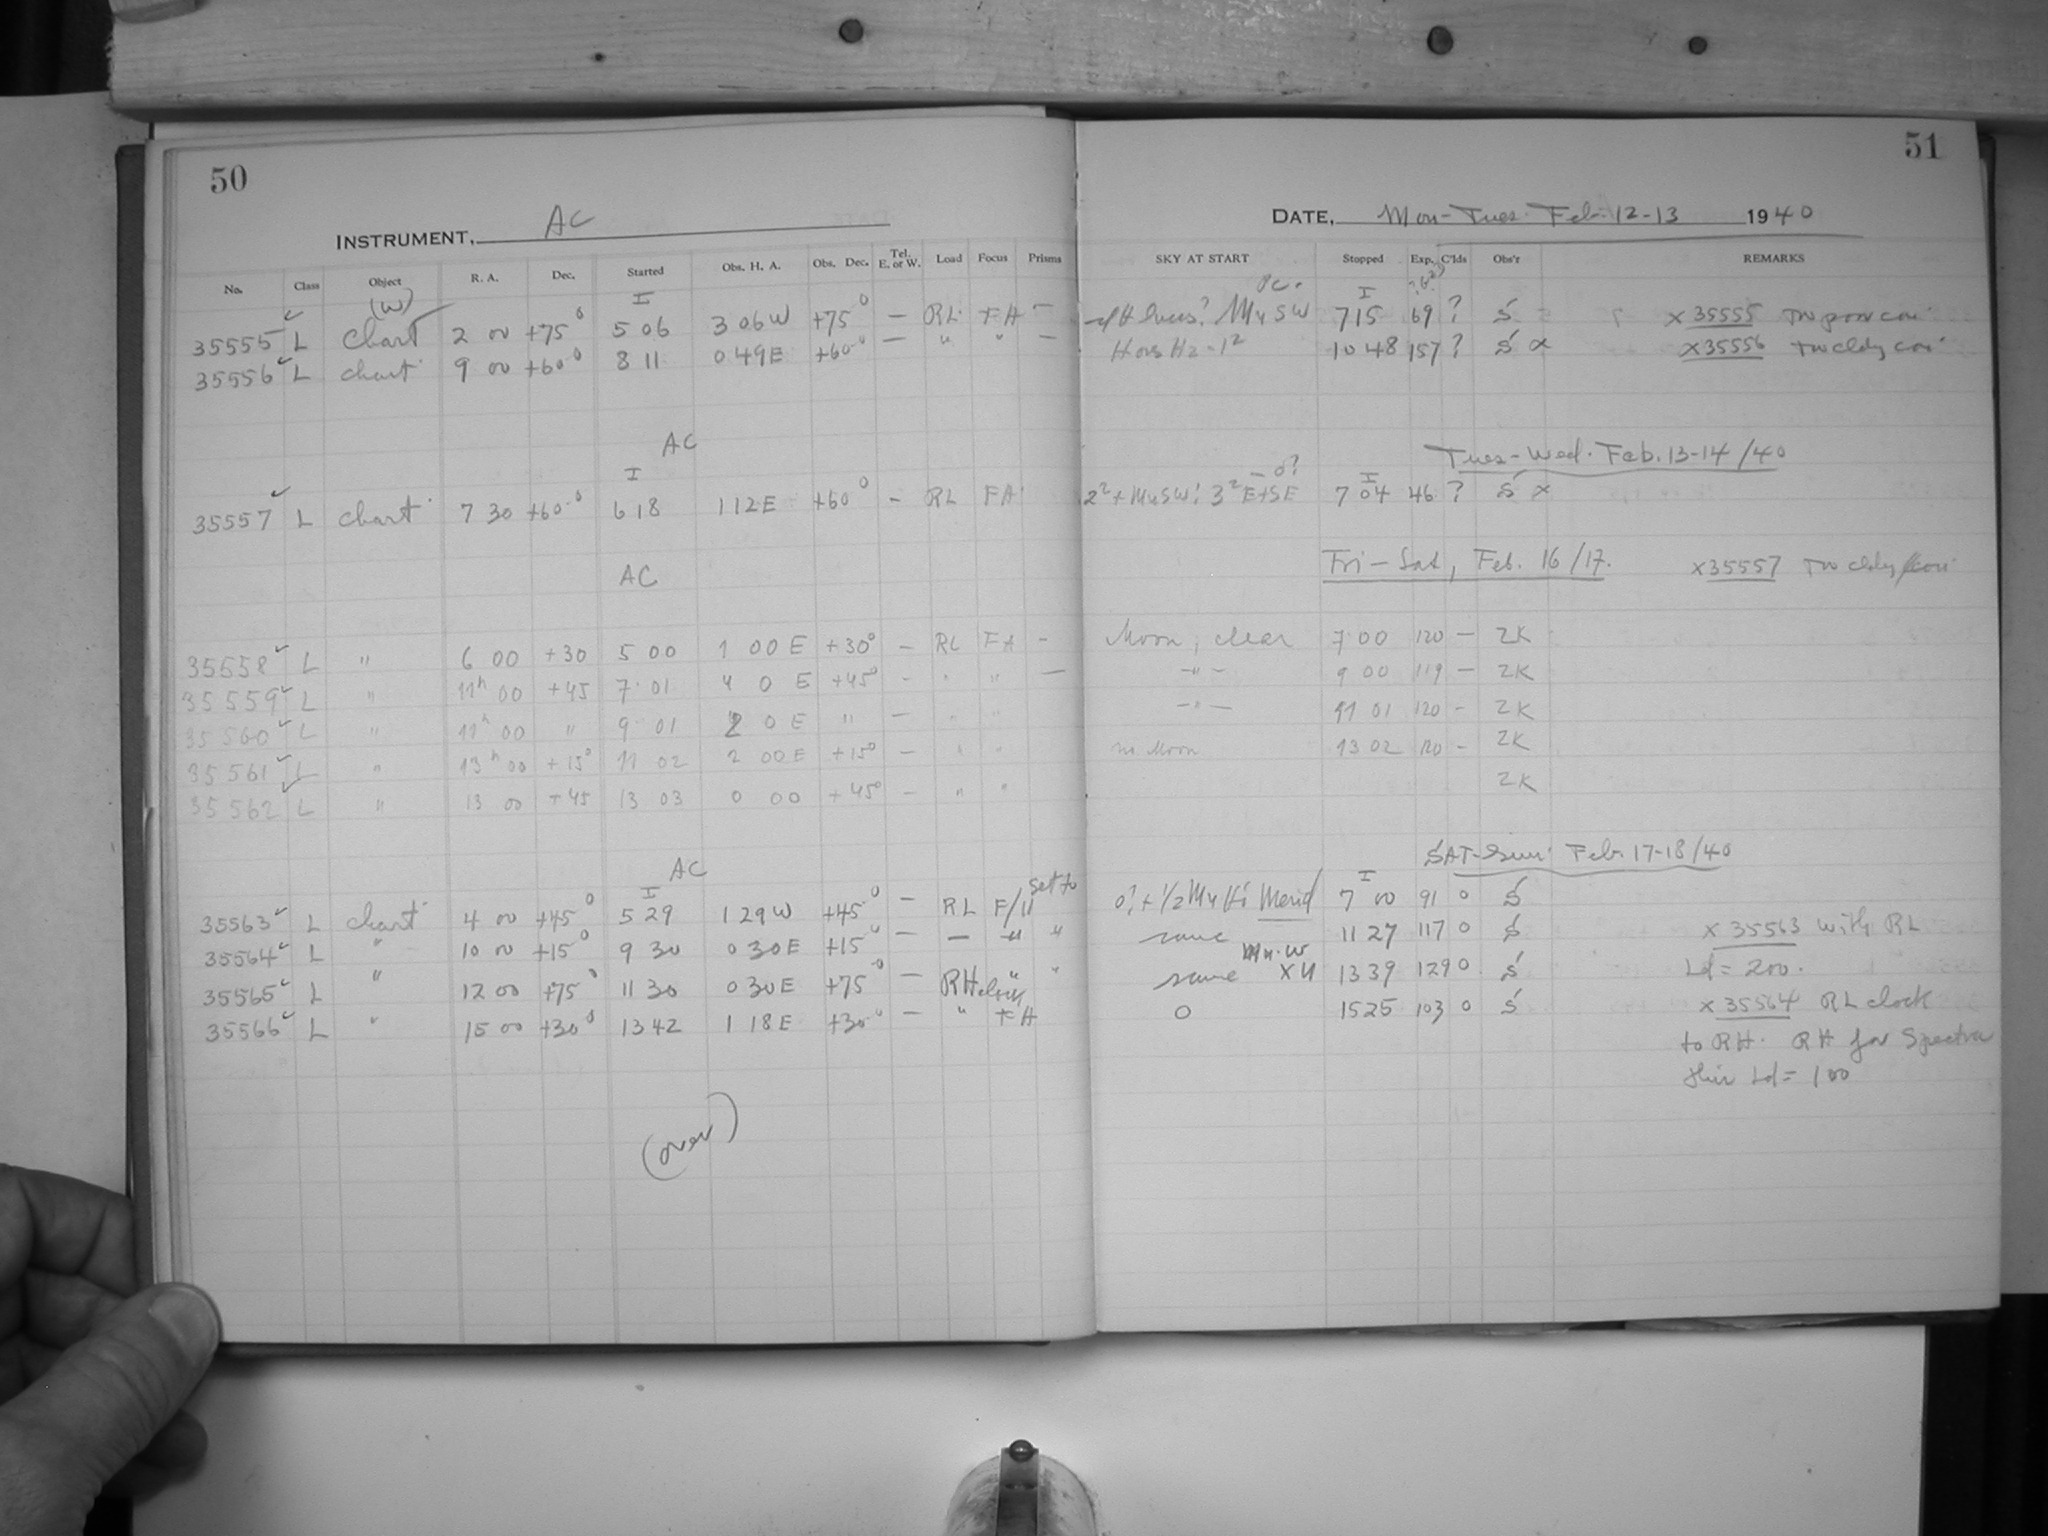 50
INSTRUMENT, AC
No. Class Object R. A. Dec. Started Obs. H. A. Obs. Dec. Tel. E. or W. Load Focus Prisms
(W) I
35555 ✓ L Chart 2 00 +75° 5 06 3 06 W +75° — RL FA —
35556 ✓ L chart 9 00 +60° 8 11 0 49 E +60° — " " —
AC
I
35557 ✓ L chart 7 30 +60° 6 18 1 12 E +60° - RL FA
AC
35558 ✓ L " 6 00 +30 5 00 1 00 E +30° - RL FA -
35559 ✓ L " 11h 00 +45 7 01 4 0 E +45° - " " —
35560 ✓ L " 11h 00 " 9 01 2 0 E " — " "
35561 ✓ L " 13h 00 +15° 11 02 2 00 E +15° — " "
35562 ✓ L " 13 00 +45 13 03 0 00 +45° — " "
AC
I set to
35563 ✓ L chart 4 00 +45° 5 29 1 29 W +45° — RL F/11
35564 ✓ L " 10 00 +15° 9 30 0 30 E +15° — — " "
35565 ✓ L " 12 00 +75° 11 30 0 30 E +75° — RH clock " "
35566 ✓ L " 15 00 +30° 13 42 1 18 E +30° — " FA
(over)
51
DATE, Mon-Tues. Feb. 12-13 1940
SKY AT START Stopped Exp. C'lds Obs'r REMARKS
I
Mn SW 7 15 69 ? S x 35555 poor
Hz - 1² 10 48 157 ? S x x 35556 cldy
Tues-Wed. Feb. 13-14/40
— 0? I
2² + Mn SW; 3² E+SE 7 04 46 ? S x
Fri - Sat, Feb. 16/17. x 35557 cldy
Moon, clear 7 00 120 — ZK
— " — 9 00 119 — ZK
— " — 11 01 120 - ZK
no Moon 13 02 120 - ZK
ZK
SAT-Sun Feb. 17-18/40
I
0? + 1/2 Mn Hi Merid 7 00 91 0 S
same 11 27 117 0 S x 35563 with RL
Mn. W
same 13 39 129 0 S Ld = 200.
0 15 25 103 0 S x 35564 RL clock
to RH. RH for Spectra
Ld = 100